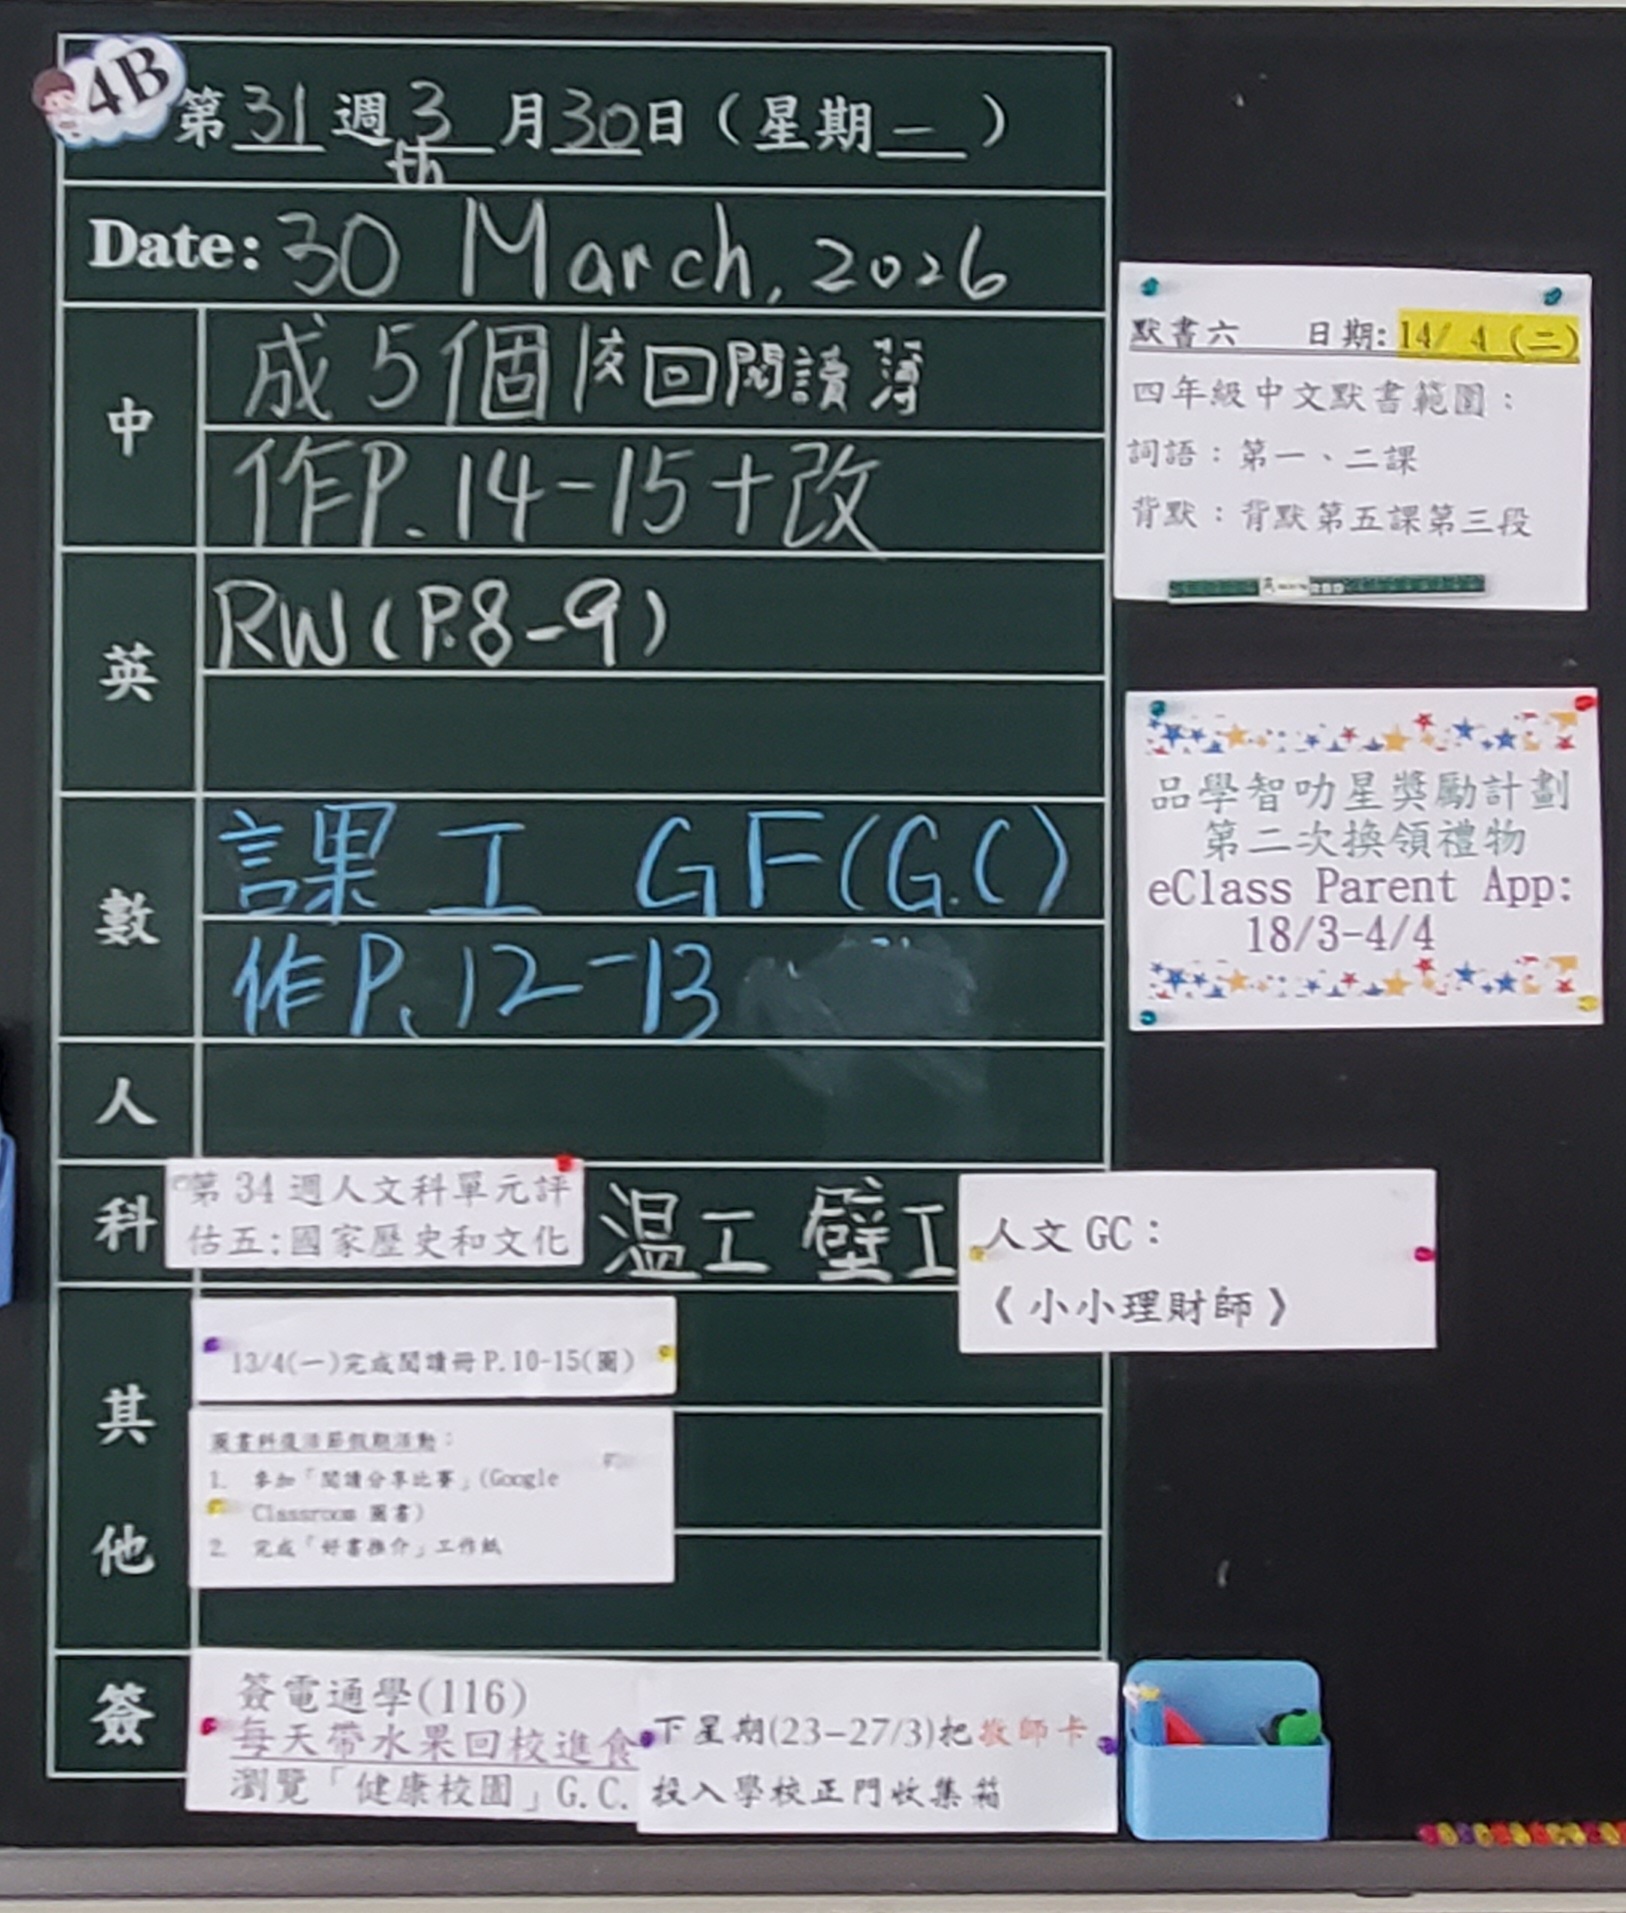 4B
第31週3月30日(星期一)
th
Date: 30 March, 2026
中
成5個 校回閱讀簿
作P.14-15+改
英
RW(P.8-9)
數
課工 GF(G.C)
作P.12-13
人
科
第34週人文科單元評
估五:國家歷史和文化
温工 壁工
人文GC:
《小小理財師》
其他
13/4(一)完成閱讀冊P.10-15(圖)
圖書科復活節假期活動:
1. 參加「閱讀分享比賽」(Google
Classroom 圖書)
2. 完成「好書推介」工作紙
簽
簽電通學(116)
每天帶水果回校進食
瀏覽「健康校園」G.C.
下星期(23-27/3)把敬師卡
投入學校正門收集箱
默書六 日期:14/ 4 (二)
四年級中文默書範圍:
詞語:第一、二課
背默:背默第五課第三段
品學智叻星獎勵計劃
第二次換領禮物
eClass Parent App:
18/3-4/4